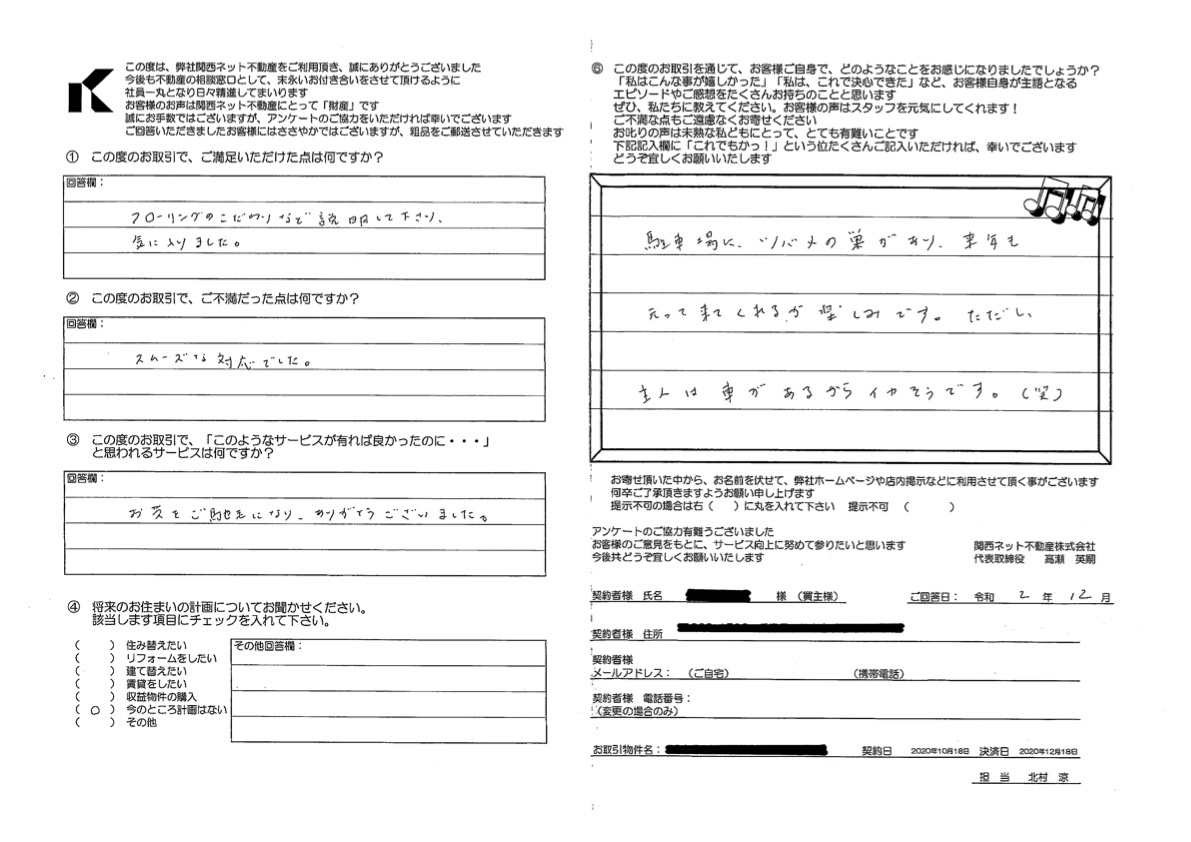 この度は、弊社関西ネット不動産をご利用頂き、誠にありがとうございました
今後も不動産の相談窓口として、末永いお付き合いをさせて頂けるように
社員一丸となり日々精進してまいります
お客様のお声は関西ネット不動産にとって「財産」です
誠にお手数ではございますが、アンケートのご協力をいただければ幸いでございます
ご回答いただきましたお客様にはささやかではございますが、粗品をご郵送させていただきます
① この度のお取引で、ご満足いただけた点は何ですか？
回答欄：
フローリングのこだわりなど説明して下さり、
気に入りました。
② この度のお取引で、ご不満だった点は何ですか？
回答欄：
スムーズな対応でした。
③ この度のお取引で、「このようなサービスが有れば良かったのに・・・」
と思われるサービスは何ですか？
回答欄：
お茶をご馳走になり、ありがとうございました。
④ 将来のお住まいの計画についてお聞かせください。
該当します項目にチェックを入れて下さい。
（　　）住み替えたい
（　　）リフォームをしたい
（　　）建て替えたい
（　　）賃貸をしたい
（　　）収益物件の購入
（ ○ ）今のところ計画はない
（　　）その他
その他回答欄：
⑥ この度のお取引を通じて、お客様ご自身で、どのようなことをお感じになりましたでしょうか？
「私はこんな事が嬉しかった」「私は、これで決心できた」など、お客様自身が主語となる
エピソードやご感想をたくさんお持ちのことと思います
ぜひ、私たちに教えてください。お客様の声はスタッフを元気にしてくれます！
ご不満な点もご遠慮なくお寄せください
お叱りの声は未熟な私どもにとって、とても有難いことです
下記記入欄に「これでもかっ！」という位たくさんご記入いただければ、幸いでございます
どうぞ宜しくお願いいたします
駐車場に、ツバメの巣があり、来年も
元って来てくれるが楽しみです。ただし、
主人は車があるからイカそうです。（笑）
お寄せ頂いた中から、お名前を伏せて、弊社ホームページや店内掲示などに利用させて頂く事がございます
何卒ご了承頂きますようお願い申し上げます
提示不可の場合は右（　　）に丸を入れて下さい　提示不可　（　　　）
アンケートのご協力有難うございました
お客様のご意見をもとに、サービス向上に努めて参りたいと思います
今後共どうぞ宜しくお願いいたします
関西ネット不動産株式会社
代表取締役　高瀬　英嗣
契約者様　氏名　様（買主様）　ご回答日：　令和　2　年　12　月
契約者様　住所
契約者様
メールアドレス：　（ご自宅）　（携帯電話）
契約者様　電話番号：
（変更の場合のみ）
お取引物件名：　契約日　2020年10月18日　決済日　2020年12月18日
担　当　北村　涼